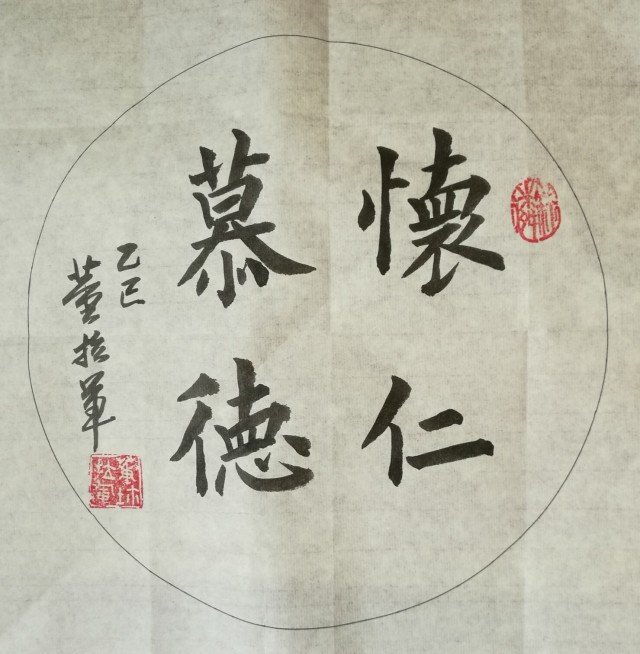 懷仁
慕德
乙巳
董拾軍